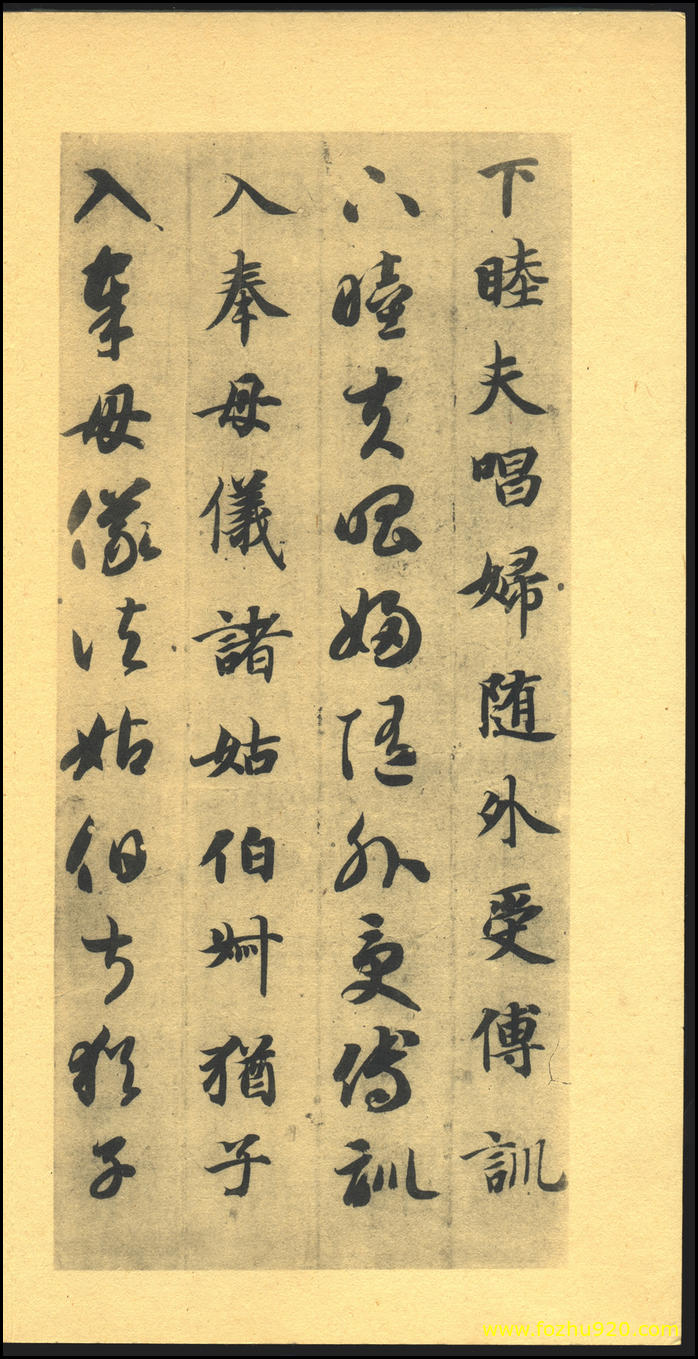 下睦夫唱婦随外受傅訓
下睦夫唱婦随外受傅訓
入奉母儀諸姑伯叔猶子
入奉母儀諸姑伯叔猶子
www.fozhu920.com